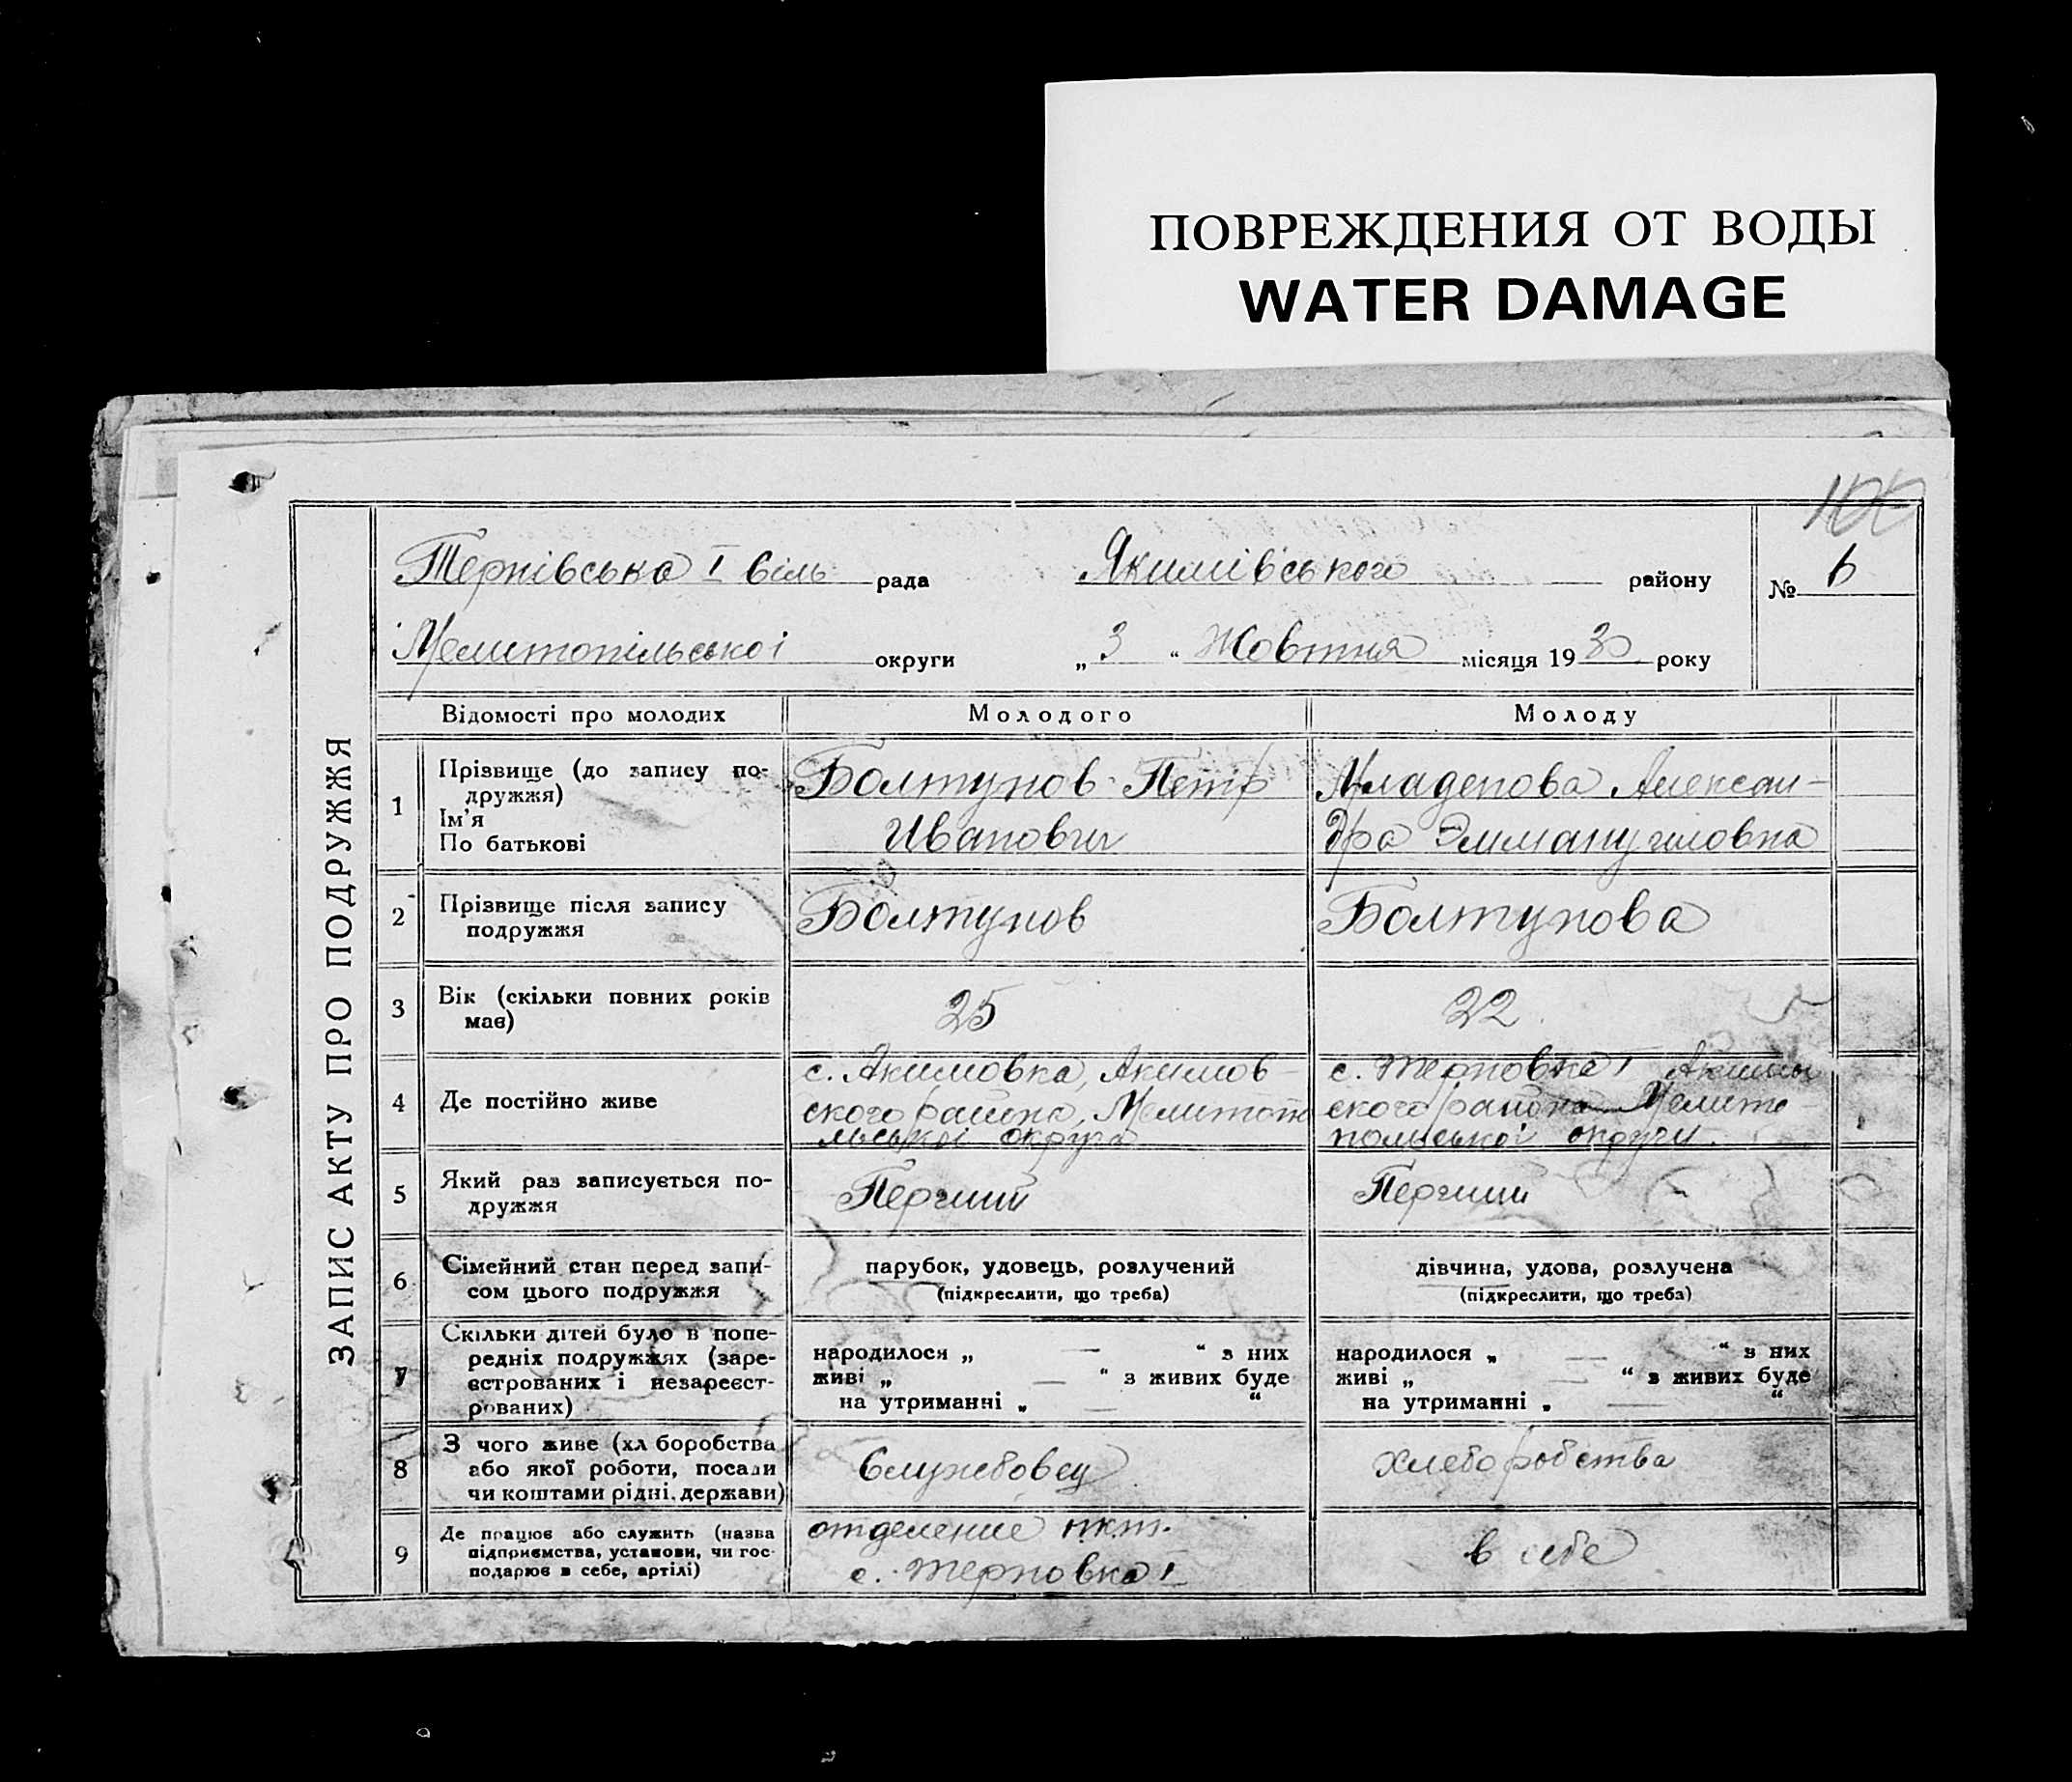 ПОВРЕЖДЕНИЯ ОТ ВОДЫ
WATER DAMAGE
Тернівська I віль рада Якимівського району № 6
Мелитопільської округи „ 3 “ Жовтня місяця 1930 року
ЗАПИС АКТУ ПРО ПОДРУЖЖЯ
Відомості про молодих Молодого Молоду
1 Прізвище (до запису по-
дружжя)
Ім'я
По батькові
Болтунов Петр
Иванович
Младенова Алексан-
дра Эммануиловна
2 Прізвище після запису
подружжя
Болтунов
Болтунова
3 Вік (скільки повних років
має)
25
22
4 Де постійно живе
с. Акимовка, Акимов-
ского района, Мелитопо
льської округа
с. Терновка I
ского района Мелито-
польської округи.
5 Який раз записується по-
дружжя
Перший
Перший
6 Сімейний стан перед запи-
сом цього подружжя
парубок, удовець, розлучений
(підкреслити, що треба)
дівчина, удова, розлучена
(підкреслити, що треба)
7 Скільки дітей було в попе-
редніх подружжях (заре-
єстрованих і незареєст-
рованих)
народилося „ — “ з них
живі „ — “ з живих буде
на утриманні „ — “
народилося „ — “ з них
живі „ — “ з живих буде
на утриманні „ — “
8 З чого живе (хл боробства
або якої роботи, посади
чи коштами рідні, держави)
Службовец
хлеборобства
9 Де працює або служить (назва
підприємства, установи, чи гос-
подарює в себе, артілі)
отделение пкт.
с. Терновка I
в себе